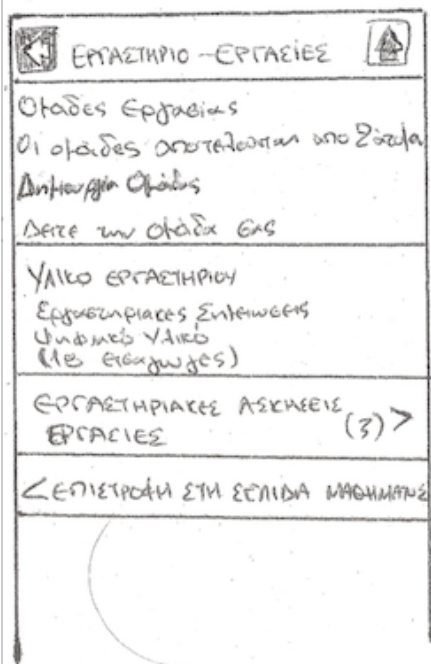 ΕΡΓΑΣΤΗΡΙΟ - ΕΡΓΑΣΙΕΣ
Ομάδες Εργασίας
Οι ομάδες αποτελούνται απο 2 άτομα
Δημιουργία Ομάδας
Δείτε την ομάδα σας
ΥΛΙΚΟ ΕΡΓΑΣΤΗΡΙΟΥ
Εργαστηριακες Σημειωσεις
Ψηφιακό Υλικό
(18 εισαγωγες)
ΕΡΓΑΣΤΗΡΙΑΚΕΣ ΑΣΚΗΣΕΙΣ
ΕΡΓΑΣΙΕΣ (3) >
< ΕΠΙΣΤΡΟΦΗ ΣΤΗ ΣΕΛΙΔΑ ΜΑΘΗΜΑΤΟΣ